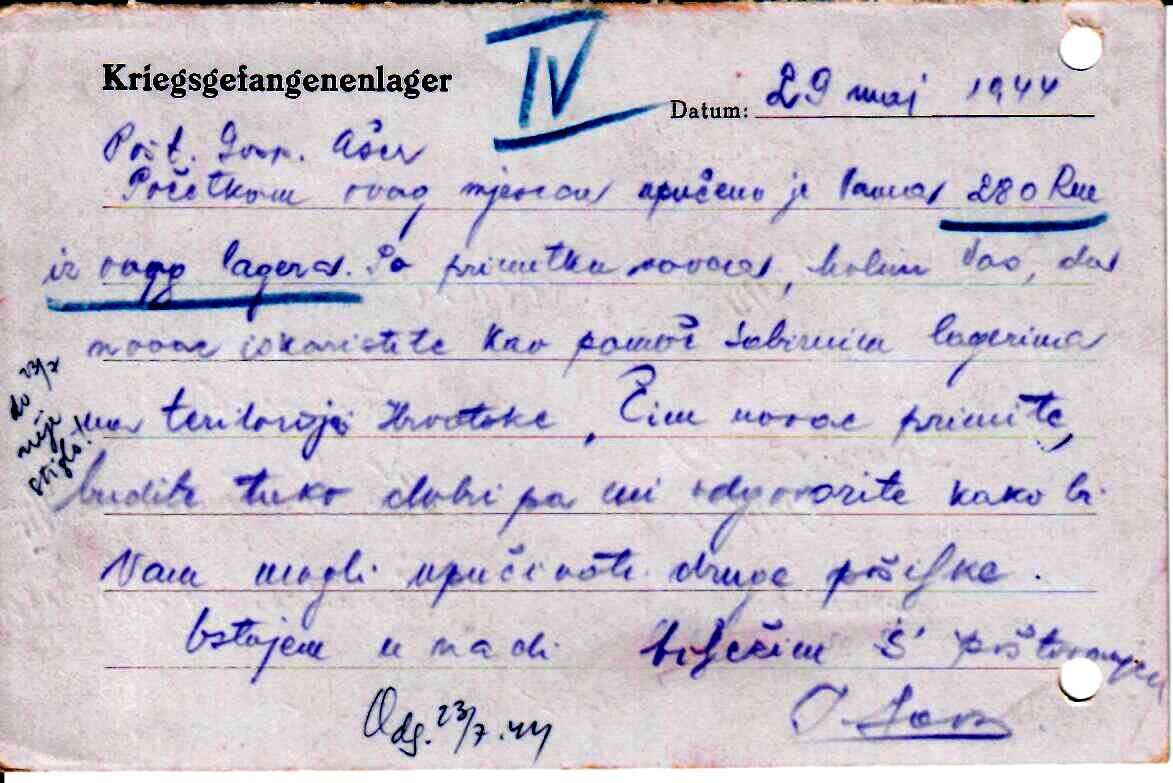 IV
Kriegsgefangenenlager
Datum: 29 maj 1944
Pošt. Gosp. Ašer
Početkom ovag mjeseca upučeno je Vama 280 Rm
iz ovog lagera. Po primitku novca, molim Vas, da
novac iskoristite kao pomoč sabirnim lagerima
na teritoriji Hrvatske, Čim novac primite,
budite tako dobri pa mi odgovorite kako bi
Vam mogli upučivati druge pošiljke.
Ostajem u nadi bilježim s' poštovanjem
do 23/7
nije
stiglo!
Odg. 23/7.44